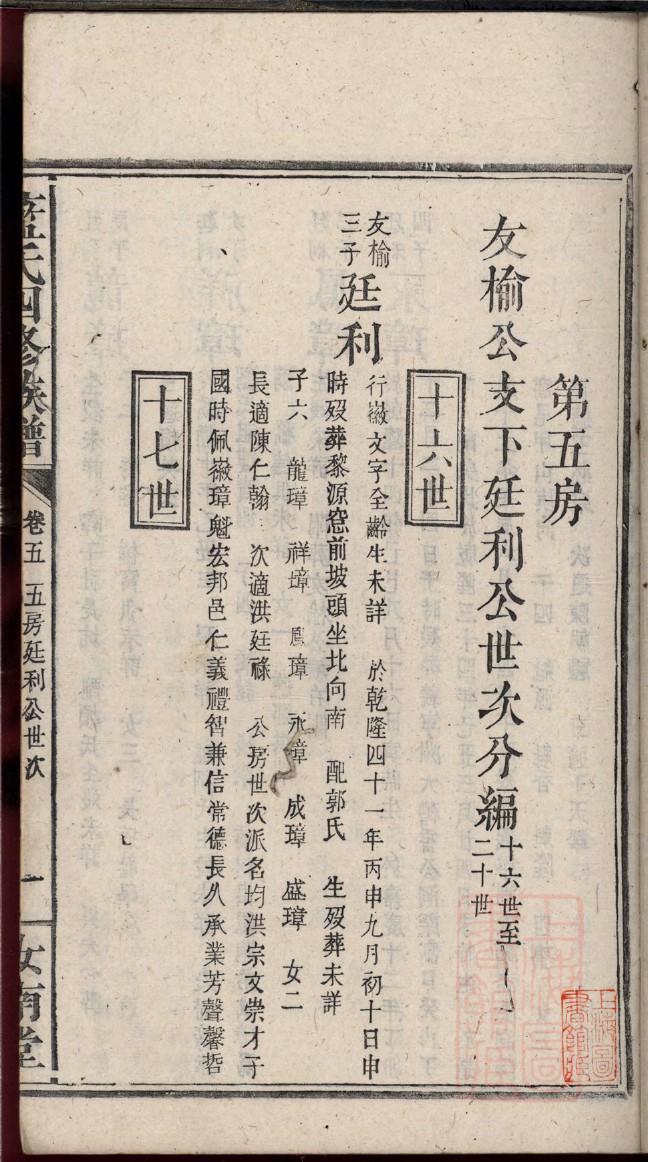 第五房
友榆公支下廷利公世次分編 十六世至
二十世
十六世
友榆
三子 廷利
行徽文字全齡生未詳 於乾隆四十一年丙申九月初十日申
時歿葬黎源窓前坡頭坐北向南 配郭氏 生歿葬未詳
子六 龍璋 祥璋 鳳璋 永璋 成璋 盛璋 女二
長適陳仁翰 次適洪廷祿 公房世次派名均洪宗文崇才子
國時佩徽璋魁宏邦邑仁義禮智兼信常德長久承業芳聲馨哲
十七世
氏四修族譜
卷五 五房廷利公世次
一
汝南堂
上海圖
書館藏